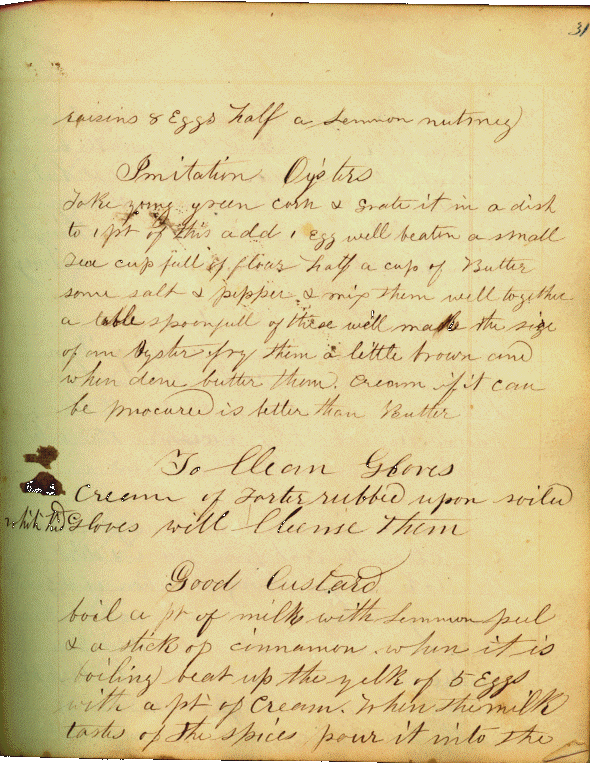 31
raisins 8 Eggs half a Lemmon nutmeg
Imitation Oysters
Take young green corn & Grate it in a dish
to 1 pt of this add 1 Egg well beaten a small
Tea cup full of flour half a cup of Butter
some salt & pepper & mix them well together
a table spoonfull of these will make the size
of an Oyster fry them a little brown and
when done butter them. Cream if it can
be procured is better than Butter
To Clean Gloves
Cream of Tarter rubbed upon soiled
white Kid Gloves will Cleense them
Good Custard
boil a pt of milk with Lemmon peel
& a stick of cinnamon. when it is
boiling beat up the yelk of 5 Eggs
with a pt of Cream. When the milk
tastes of the spices pour it into the